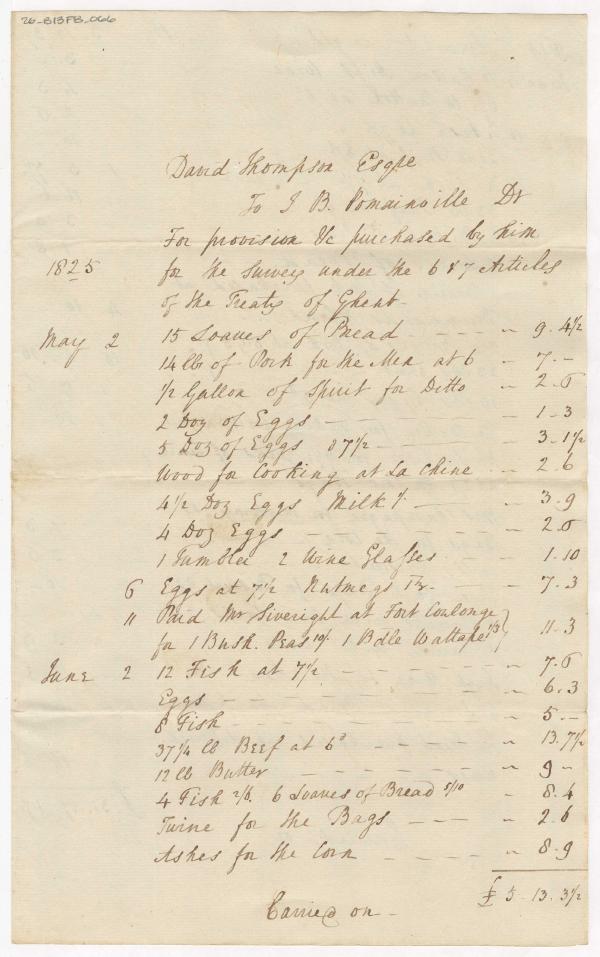 26-B13FB-066
David Thompson Esqre
To J B. Pomainville Dr
For provision &c purchased by him
1825 for the Survey under the 6 & 7 Articles
of the Treaty of Ghent -
May 2 15 Loaves of Bread - - - " 9. 4½
14 lb of Pork for the Men at 6 - 7. -
½ Gallon of Spirit for Ditto " 2. 6
2 Doz of Eggs - - - " 1 - 3
5 Doz of Eggs @ 7½ - - - " 3. 1½
Wood for Cooking at La Chine " 2. 6
4½ Doz Eggs Milk 1/ - " 3. 9
4 Doz Eggs - - - - " 2. 6
1 Tumbler 2 Wine Glasses - 1. 10
6 Eggs at 7½ Nutmegs - - - " 7. 3
11 Paid Mr Siveright at Fort Coulonge
for 1 Bush. Peas 10/ 1 Bdle Wattape 1/3 } 11. 3
June 2 12 Fish at 7½ - - - - - " 7. 6
Eggs - - - - - - - " 6. 3
8 Fish - - - - - - - " 5. -
37¼ lb Beef at 6d - - - " 13. 7½
12 lb Butter - - - - - " 9 -
4 Fish 2/6. 6 Loaves of Bread 5/10 " 8. 4
Twine for the Bags - - - " 2. 6
Ashes for the Corn - - - - " 8. 9
£ 5. 13. 3½
Carried on -